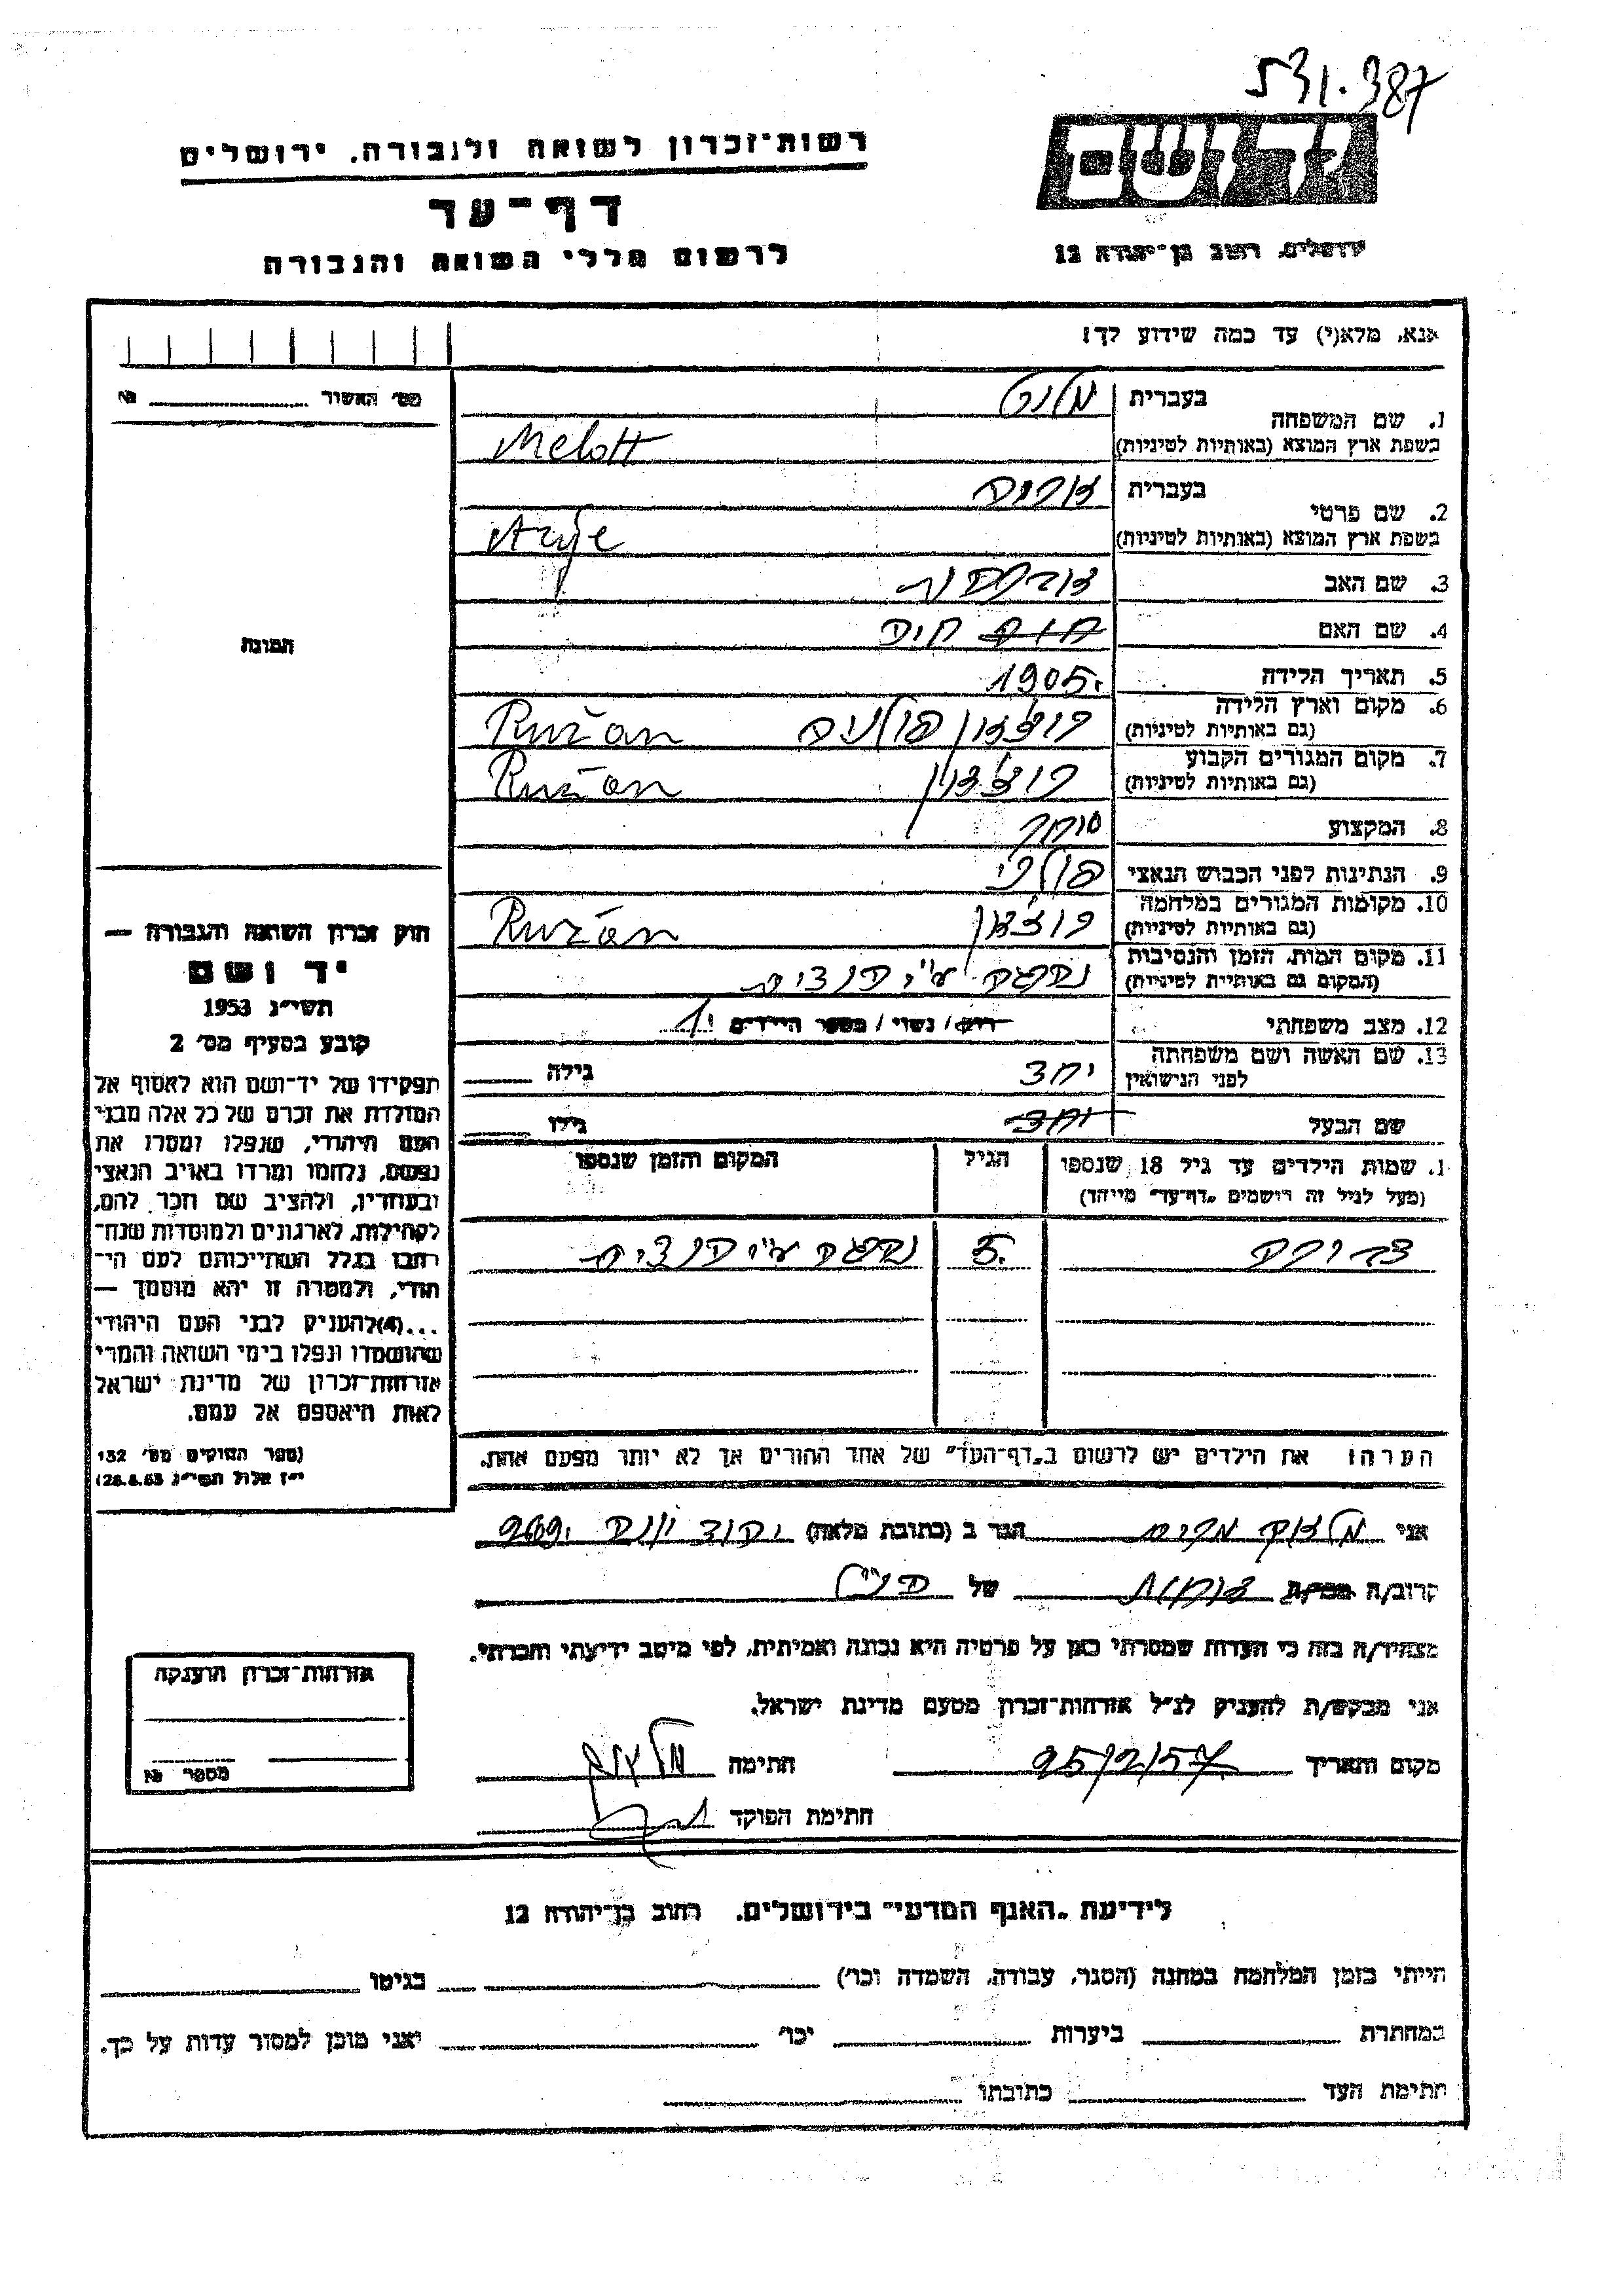 531.387
רשות־זכרון לשואה ולגבורה, ירושלים
דף־עד
לרשום חללי השואה והגבורה
ידושם
ירושלים, רחוב בן־יהודה 12
אנא, מלא(י) עד כמה שידוע לך!
מס׳ האשור № 
1. שם המשפחה
בעברית
בשפת ארץ המוצא (באותיות לטיניות)
Melott
2. שם פרטי
בעברית
בשפת ארץ המוצא (באותיות לטיניות)
Arije
3. שם האב
4. שם האם
5. תאריך הלידה 1905.
6. מקום וארץ הלידה
(גם באותיות לטיניות)
רוז׳אן פולניה Ružan
7. מקום המגורים הקבוע
(גם באותיות לטיניות)
רוז׳אן Ružan
8. המקצוע סוחר
9. הנתינות לפני הכבוש הנאצי פולני
10. מקומות המגורים במלחמה
(גם באותיות לטיניות)
רוז׳אן Ružan
11. מקום המות, הזמן והנסיבות
(המקום גם באותיות לטיניות)
נהרגה ע״י הנצים
12. מצב משפחתי רווק / נשוי / מספר הילדים 1
13. שם האשה ושם משפחתה
לפני הנישואין
גילה
שם הבעל גילו
1. שמות הילדים עד גיל 18 שנספו
(מעל לגיל זה רישמים „דף־עד״ מייחד)
הגיל
המקום והזמן שנספו
5.
נהרגה ע״י הנצים
הערה: את הילדים יש לרשום ב„דף־העד״ של אחד ההורים אך לא יותר מפעם אחת.
התמונה
חוק זכרון השואה והגבורה —
יד ושם
תשי״ג 1953
קובע בסעיף מס׳ 2
תפקידו של יד־ושם הוא לאסוף אל
המולדת את זכרם של כל אלה מבני
העם היהודי, שנפלו ומסרו את
נפשם, נלחמו ומרדו באויב הנאצי
ובעוזריו, ולהציב שם וזכר להם,
לקהילות, לארגונים ולמוסדות שנח־
רבו בגלל השתייכותם לעם הי־
הודי, ולמטרה זו יהא מוסמך —
...(4)להעניק לבני העם היהודי
שהושמדו ונפלו בימי השואה והמרי
אזרחות־זכרון של מדינת ישראל
לאות היאספם אל עמם.
(ספר החוקים מס׳ 132
י״ז אלול תשי״ג 28.8.53)
אני
הגר ב (כתובת מלאה)
קרוב/ה מכר/ה
של הנ״ל
מצהיר/ה בזה כי העדות שמסרתי כאן על פרטיה היא נכונה ואמיתית, לפי מיטב ידיעתי והכרתי.
אני מבקש/ת להעניק לנ״ל אזרחות־זכרון מטעם מדינת ישראל.
מקום ותאריך 25/2/57 חתימה
חתימת הפוקד
אזרחות־זכרון הוענקה
מספר №
לידיעת „האגף המדעי״ בירושלים, רחוב בן־יהודה 12
הייתי בזמן המלחמה במחנה (הסגר, עבודה, השמדה וכו׳) בגיטו
במחתרת ביערות וכו׳ ואני מוכן למסור עדות על כך.
חתימת העד כתובתו